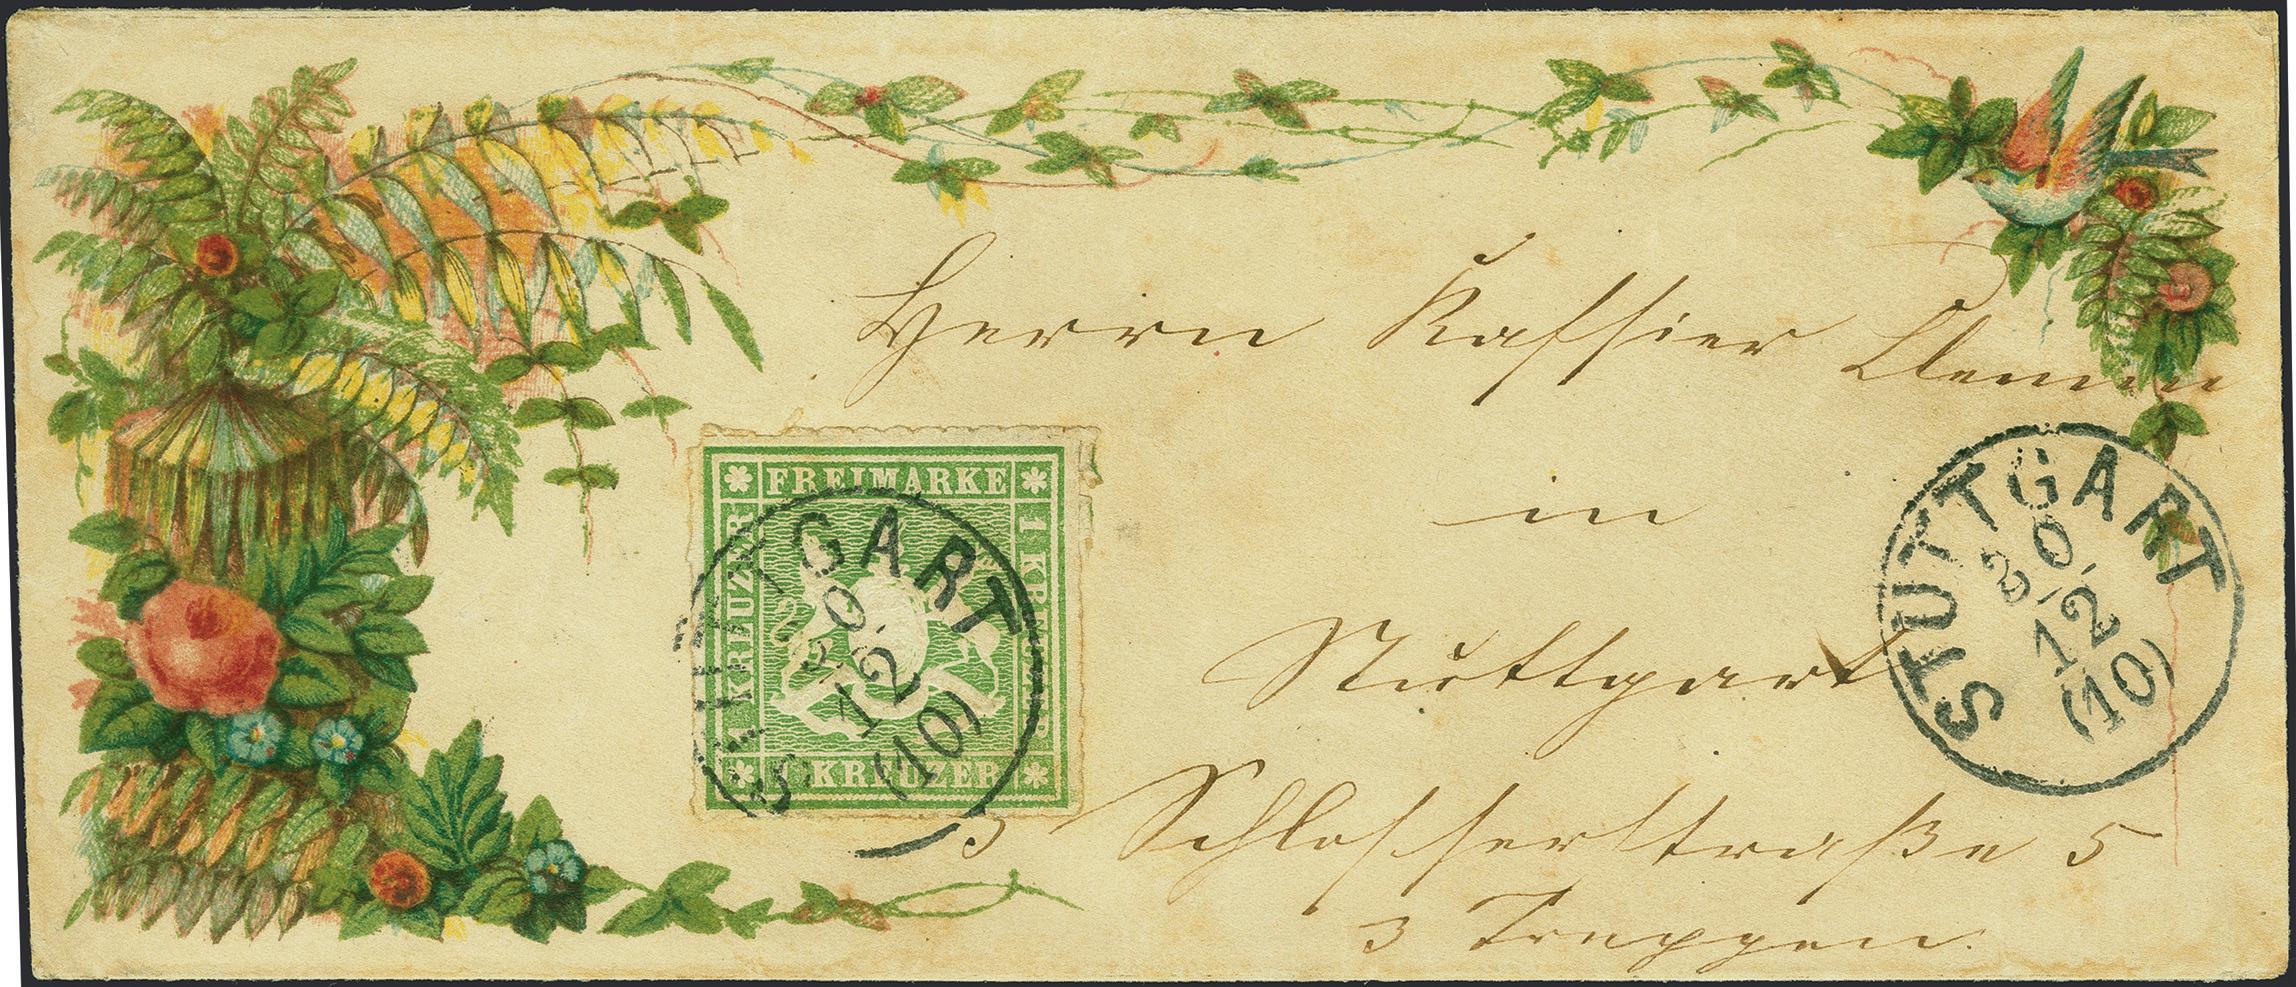 Herrn Kassier Clemm
in
Stuttgart
Schlosserstraße 5
3 Treppen.
FREIMARKE
1 KREUZER
KREUZER
1 KREUZER
STUTTGART
20.
12
(10)
STUTTGART
20.
12
(10)